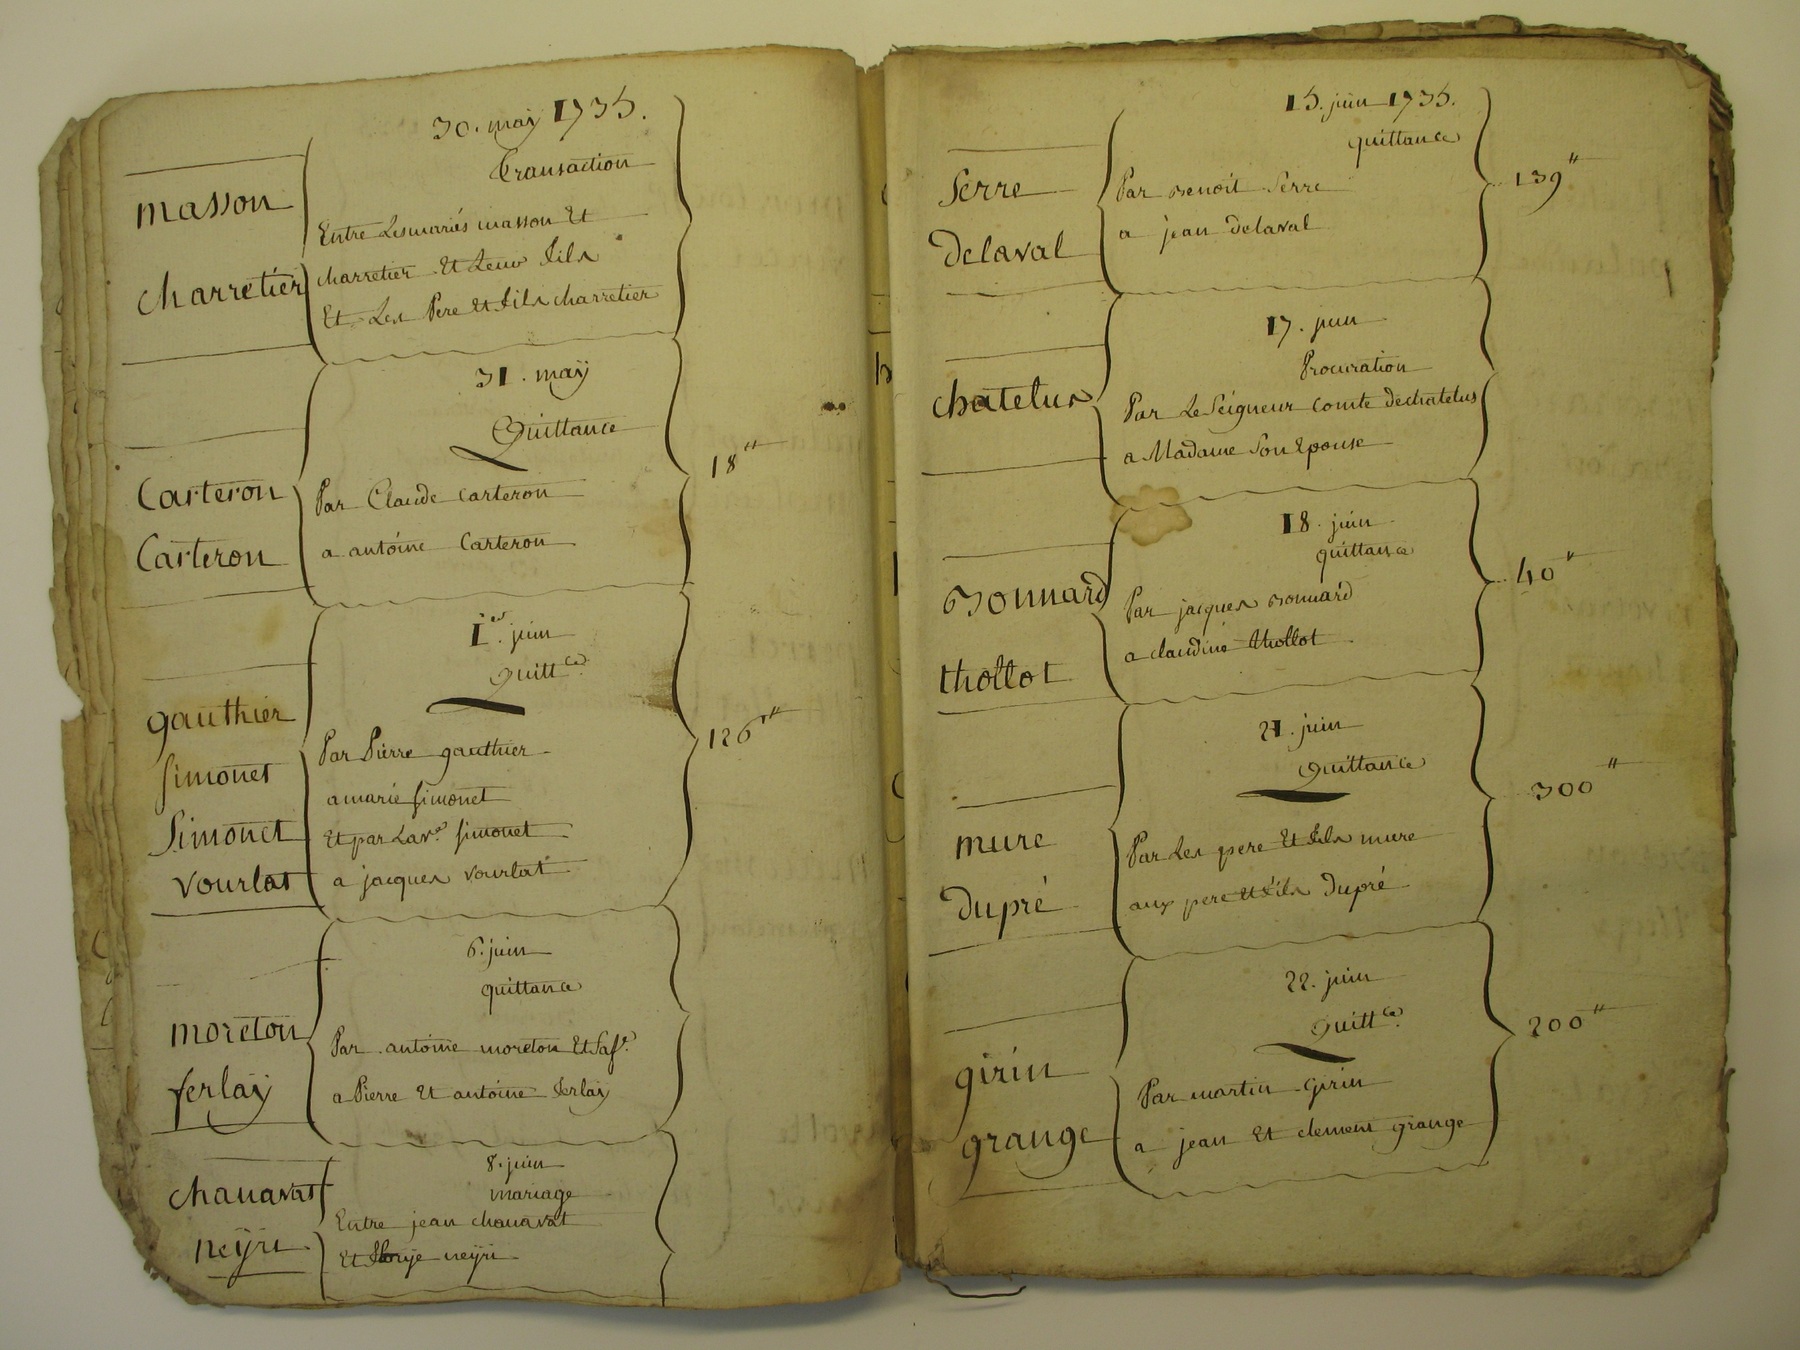 30. maÿ 1735.
Transaction
masson
Entre Les mariés masson Et
charretier
charretier Et Leur fils
Et Les Pere Et fils charretier
31. maÿ
Quittance
18"
Carteron
Par Claude Carteron
Carteron
a antoine Carteron
1er. juin
Quittce.
126"
gauthier
Par Pierre gauthier
simonet
a marie simonet
Simonet
Et par La ve. simonet
vourlat
a jacques vourlat
6. juin
quittance
moreton
Par antoine moreton Et sa fe.
ferlaÿ
a Pierre Et antoine ferlaÿ
8. juin
chanavat
mariage
Entre jean chanavat
neÿri
Et neÿri
15. juin 1735.
quittance
139"
Serre
Par Benoit Serre
delaval
a jean delaval
17. juin
Procuration
chatelus
Par Le Seigneur comte de chatelus
a Madame Son Epouse
18. juin
quittance
40"
Bonnard
Par jacques Bonnard
thollot
a claudine thollot
21. juin
Quittance
300"
mure
Par Les pere Et fils mure
dupré
aux pere Et fils dupré
22. juin
Quittce.
200"
girin
Par martin girin
grange
a jean Et clement grange